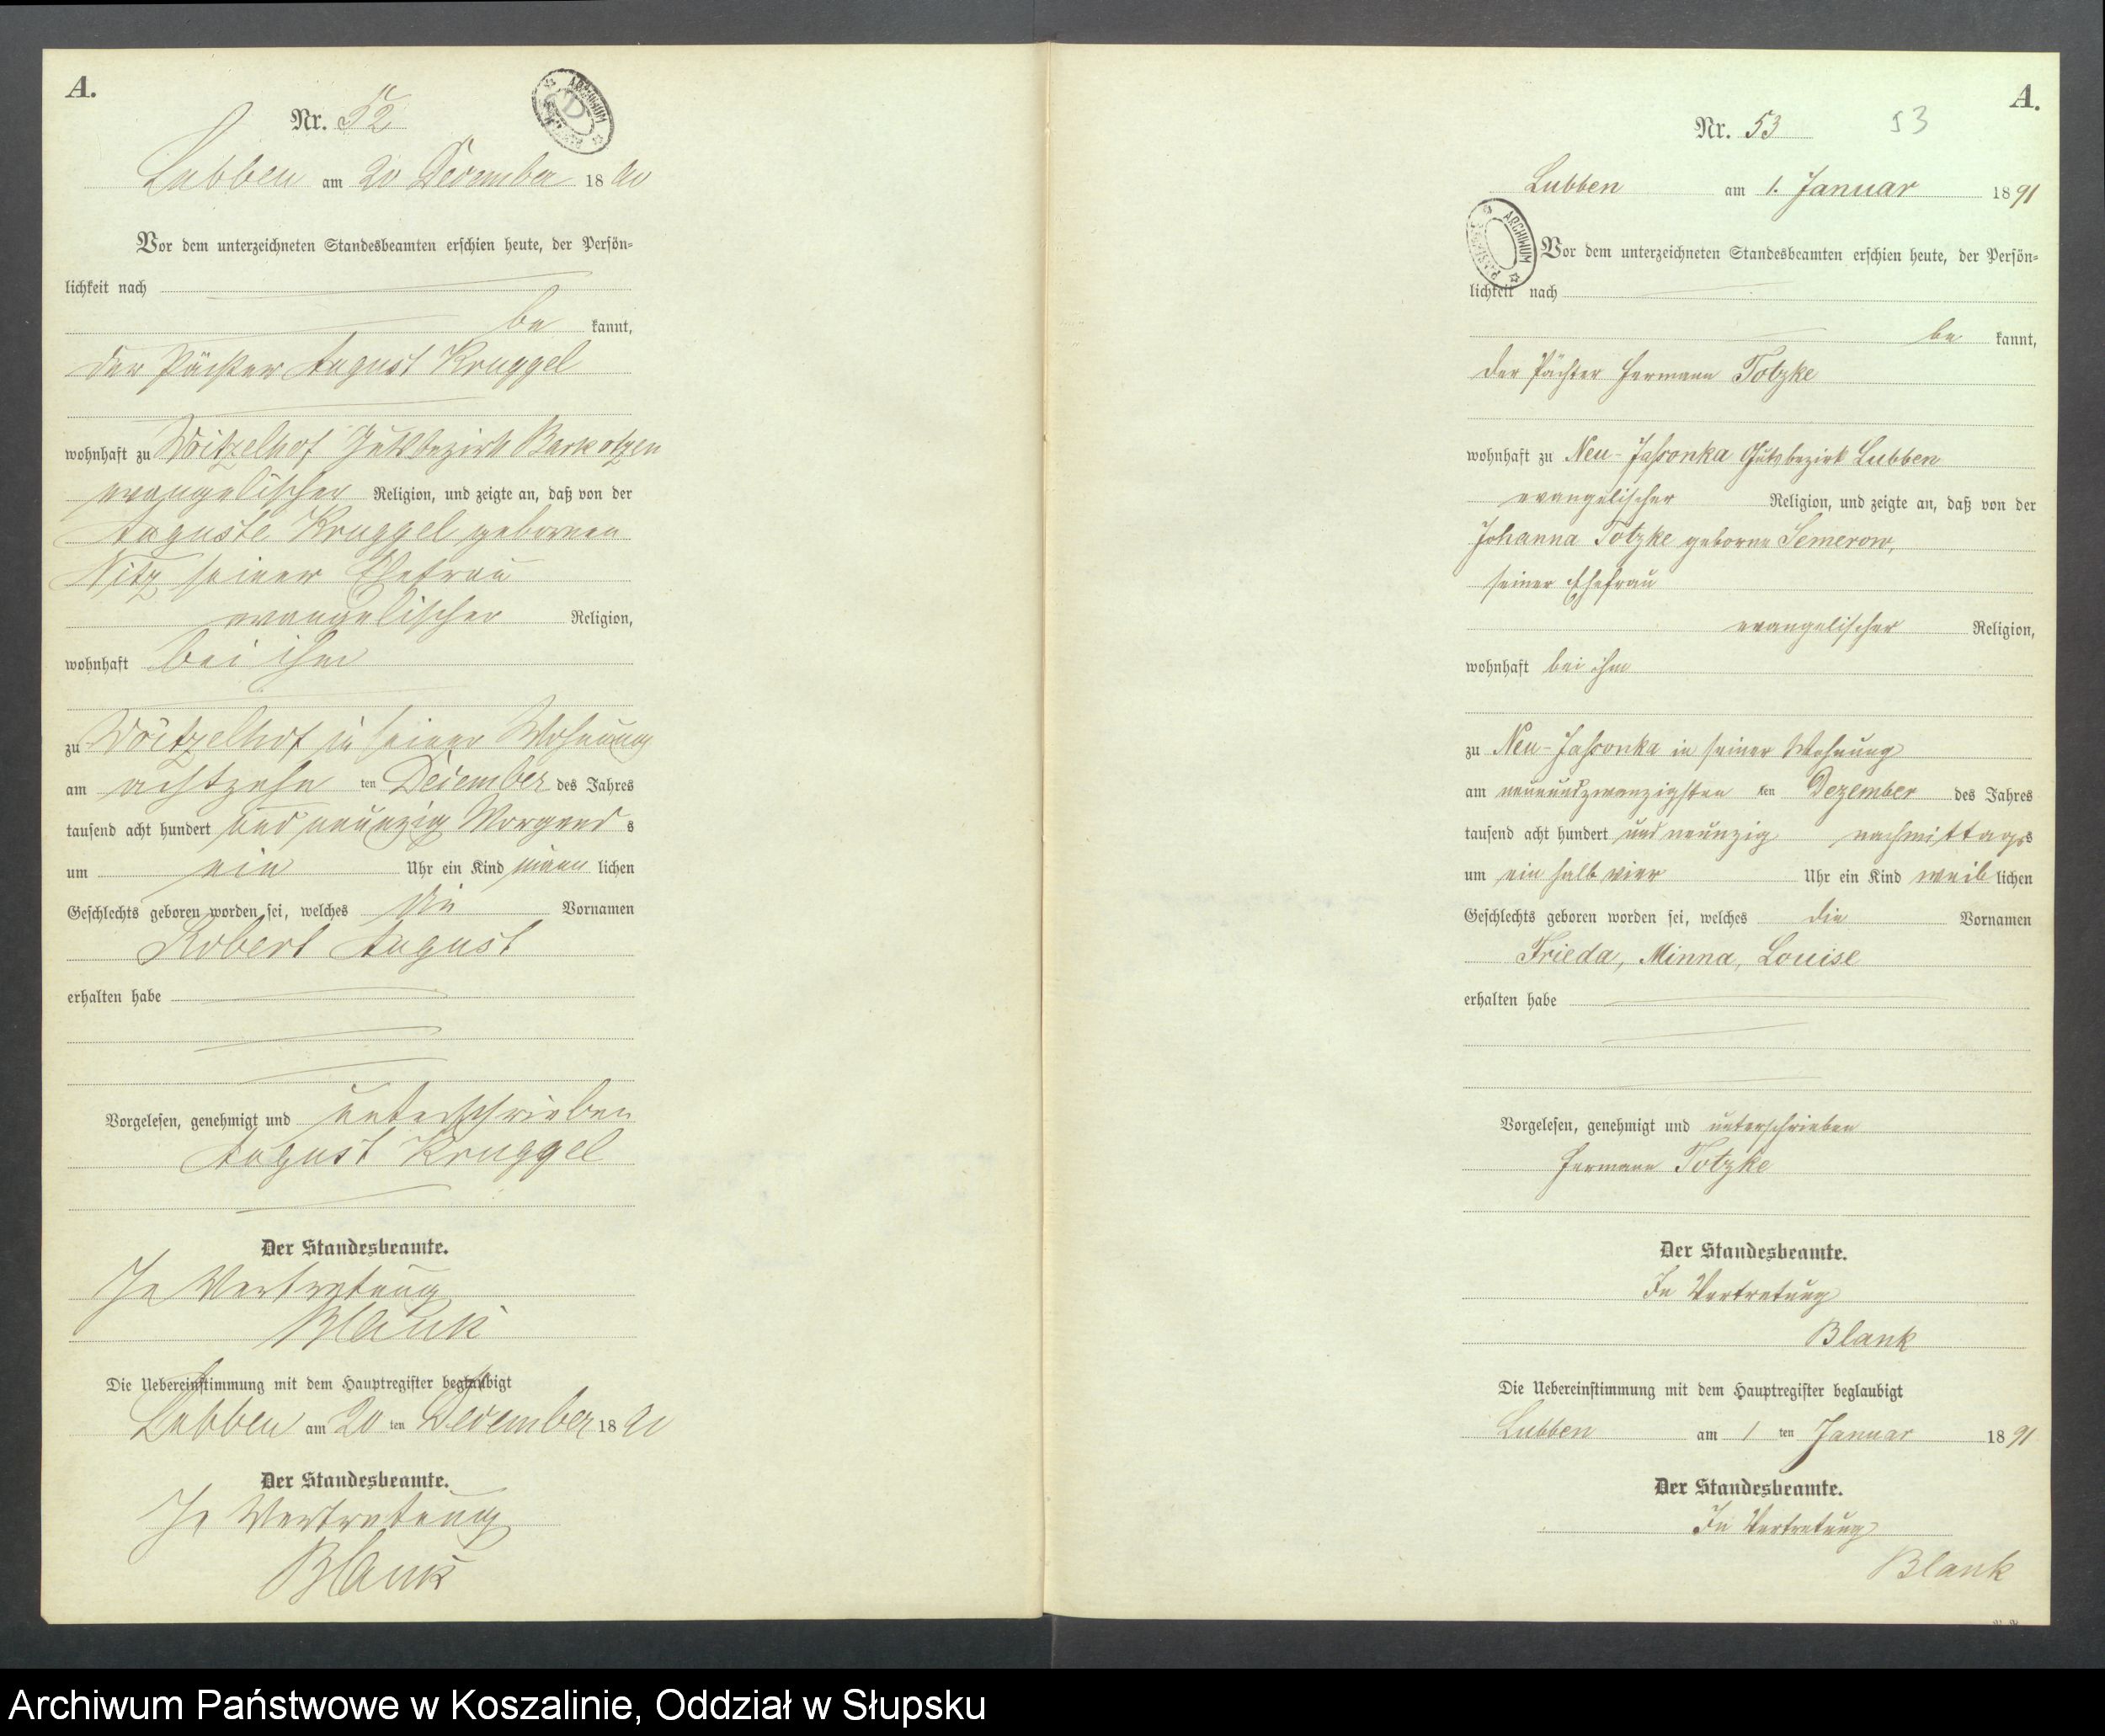 A.
Nr. 52
Lubben am 20 December 1890
Vor dem unterzeichneten Standesbeamten erschien heute, der Persön-
lichkeit nach
be kannt,
der Pächter August Kruggel
wohnhaft zu Woitzelhof Gutsbezirk Barkotzen
evangelischer Religion, und zeigte an, daß von der
Auguste Kruggel geborenen
Nitz seiner Ehefrau
evangelischer Religion,
wohnhaft bei ihm
zu Woitzelhof in seiner Wohnung
am achtzehn ten December des Jahres
tausend acht hundert und neunzig Morgens
um ein Uhr ein Kind männlichen
Geschlechts geboren worden sei, welches die Vornamen
Robert August
erhalten habe
Vorgelesen, genehmigt und unterschrieben
August Kruggel
Der Standesbeamte.
In Vertretung
Blank
Die Uebereinstimmung mit dem Hauptregister beglaubigt
Lubben am 20 ten December 1890
Der Standesbeamte.
In Vertretung
Blank
A.
Nr. 53
53
Lubben am 1. Januar 1891
ARCHIWUM
Vor dem unterzeichneten Standesbeamten erschien heute, der Persön-
lichkeit nach
be kannt,
der Pächter Hermann Totzke
wohnhaft zu Neu-Jassonka Gutsbezirk Lubben
evangelischer Religion, und zeigte an, daß von der
Johanna Totzke geborne Semerow,
seiner Ehefrau
evangelischer Religion,
wohnhaft bei ihm
zu Neu-Jassonka in seiner Wohnung
am neunundzwanzigsten ten Dezember des Jahres
tausend acht hundert und neunzig nachmittags
um ein halb vier Uhr ein Kind weiblichen
Geschlechts geboren worden sei, welches die Vornamen
Frieda, Minna, Louise
erhalten habe
Vorgelesen, genehmigt und unterschrieben
Hermann Totzke
Der Standesbeamte.
In Vertretung
Blank
Die Uebereinstimmung mit dem Hauptregister beglaubigt
Lubben am 1 ten Januar 1891
Der Standesbeamte.
In Vertretung
Blank
Archiwum Państwowe w Koszalinie, Oddział w Słupsku